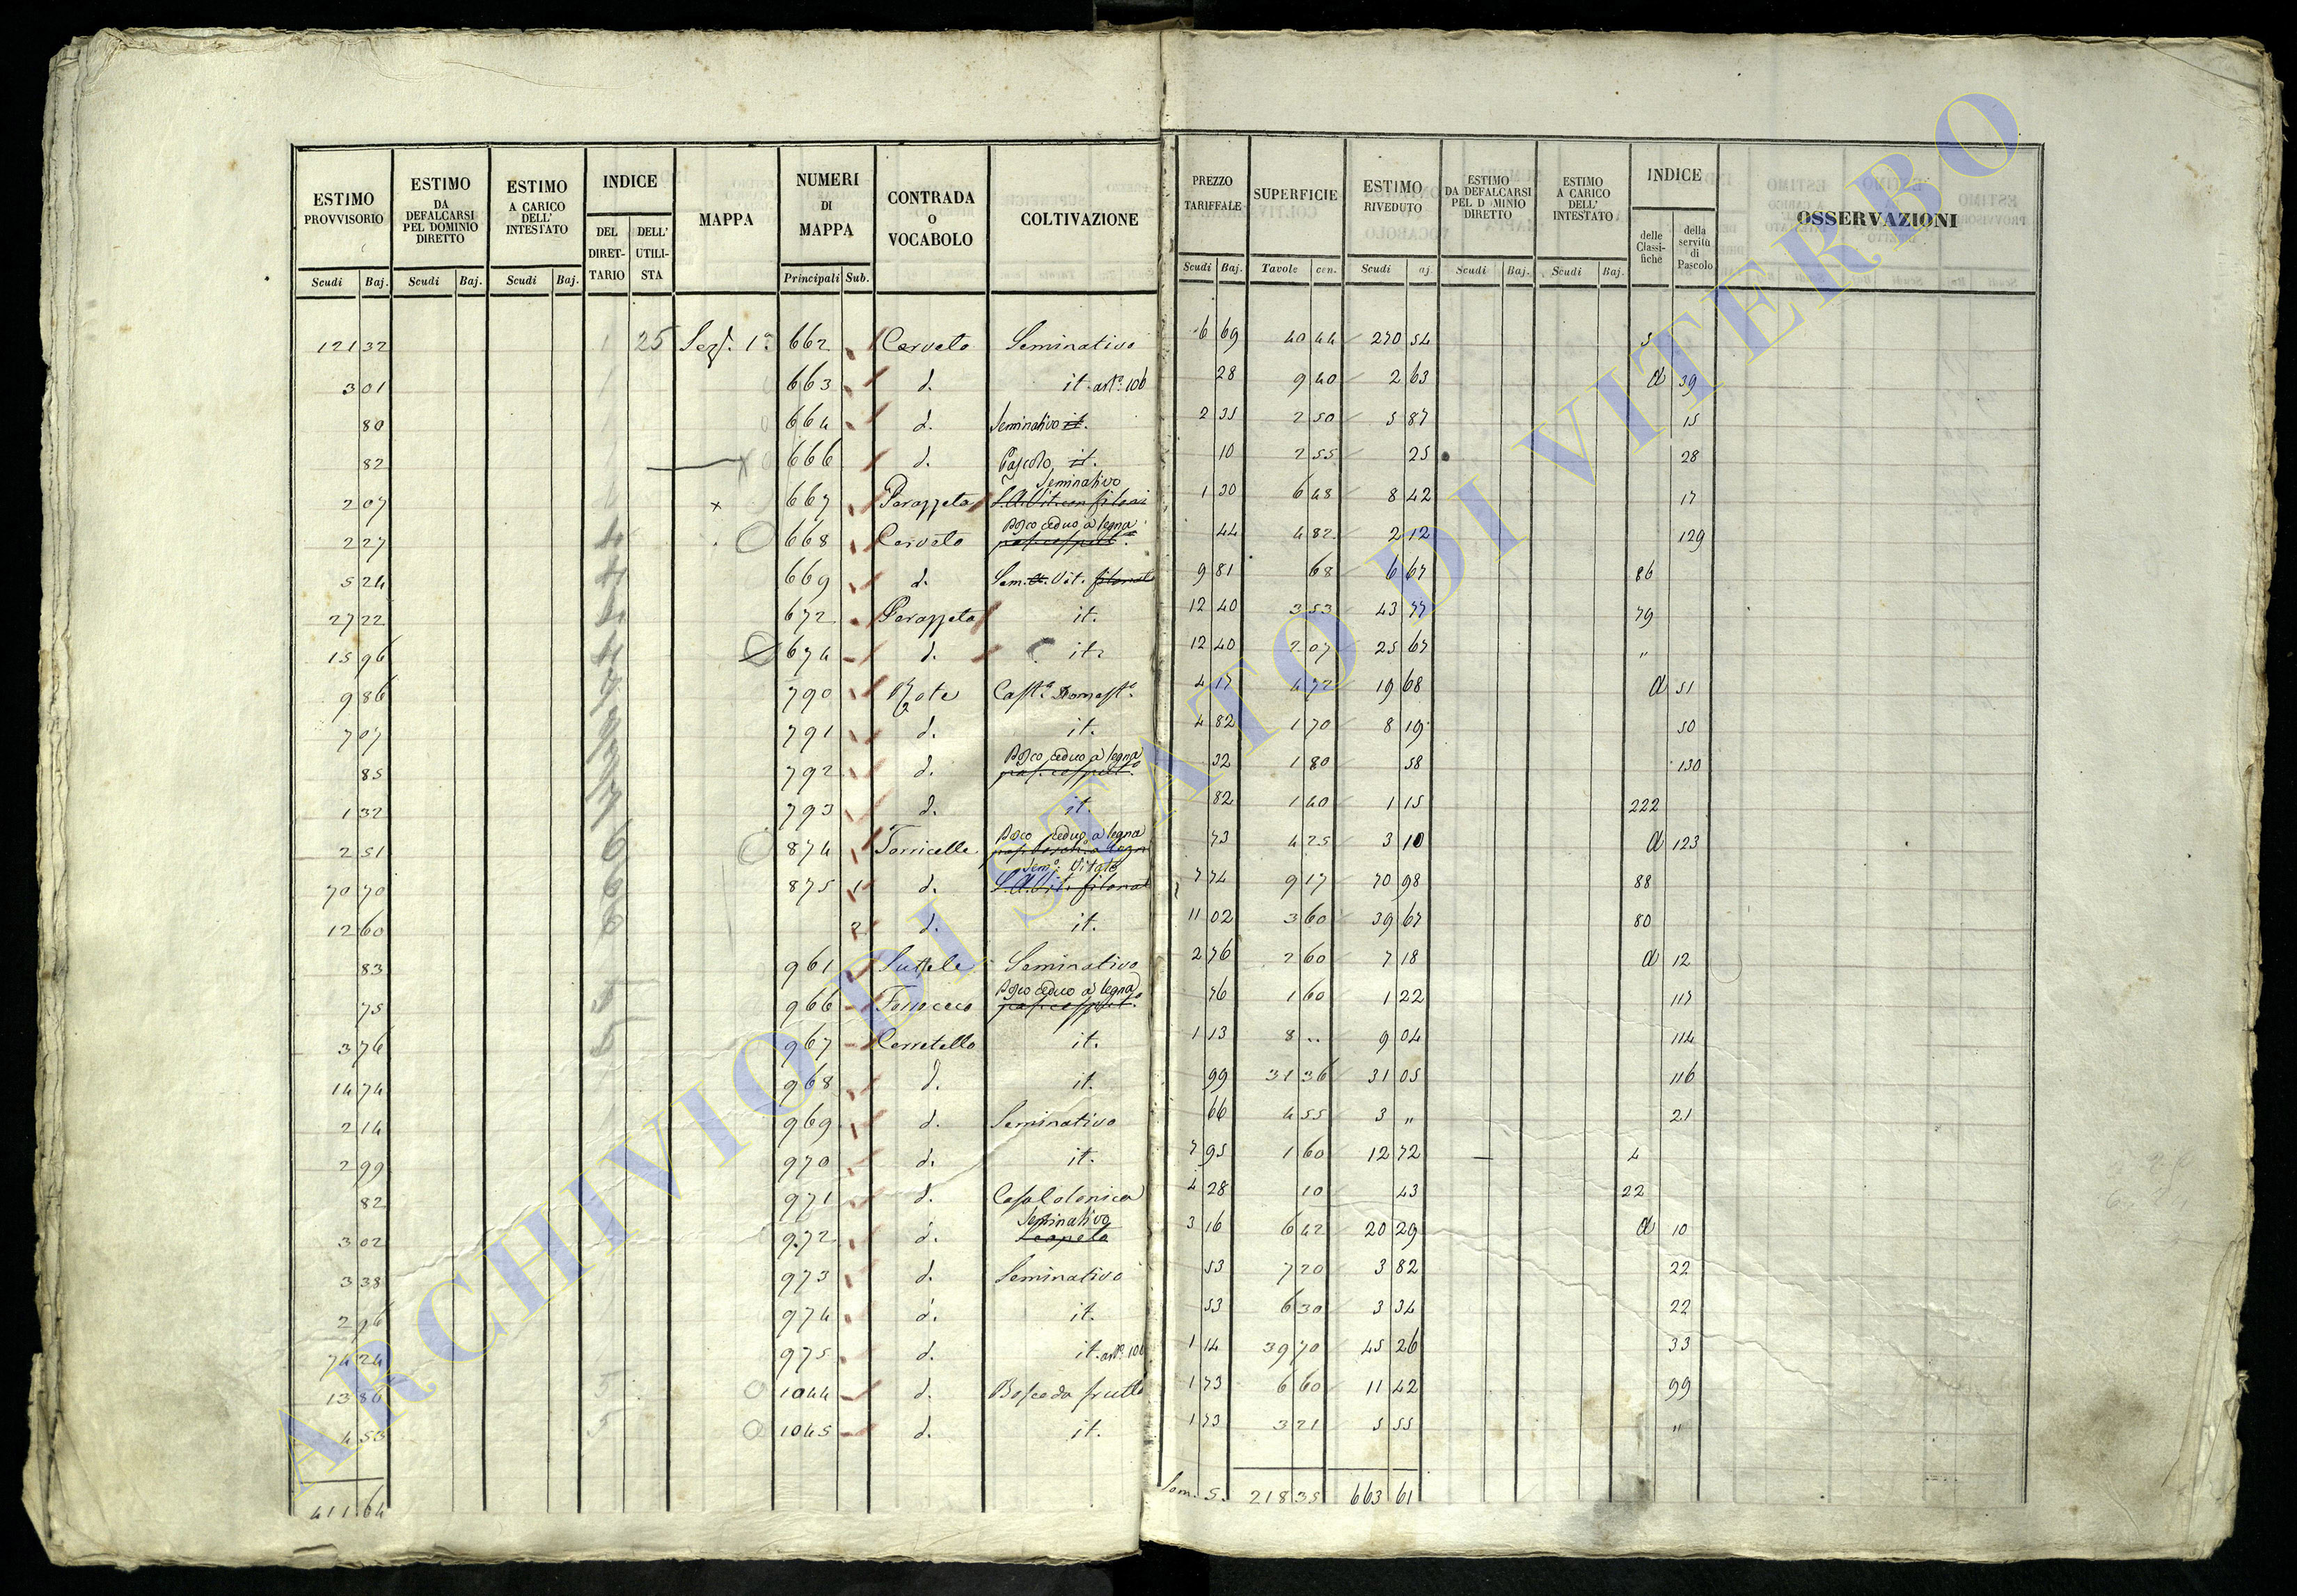 ESTIMO PROVVISORIO ESTIMO DA DEFALCARSI PEL DOMINIO DIRETTO ESTIMO A CARICO DELL' INTESTATO INDICE DEL DIRETTARIO DELL' UTILISTA MAPPA NUMERI DI MAPPA CONTRADA O VOCABOLO COLTIVAZIONE PREZZO TARIFFALE SUPERFICIE ESTIMO RIVEDUTO ESTIMO DA DEFALCARSI PEL D MINIO DIRETTO ESTIMO A CARICO DELL' INTESTATO INDICE delle Classifiche della servitù di Pascolo OSSERVAZIONI
Scudi Baj. Scudi Baj. Scudi Baj. Principali Sub. Scudi Baj. Tavole cen. Scudi aj. Scudi Baj. Scudi Baj.
121 32 1 25 Sez. 1a. 662 Cerveto Seminativo 6 69 40 44 270 54 5
3 01 663 d. it. art.o 106 28 9 40 2 63 a 39
80 664 d. Seminativo it. 2 35 2 50 5 87 15
82 666 d. Pascolo it. 10 2 55 25 28
2 07 667 Parazzeta Seminativo 1 30 6 48 8 42 17
2 27 4 668 Cerveto Bosco ceduo a legna 44 4 82 2 12 129
5 24 4 669 d. Sem. Vit. 9 81 68 6 67 86
27 22 4 672 Parazzeta it. 12 40 3 53 43 77 79
15 96 4 674 d. it. 12 40 2 07 25 67 "
9 86 790 Cast.o Domest.o 4 17 4 72 19 68 a 51
7 07 791 d. it. 4 82 1 70 8 19 50
85 792 d. Bosco ceduo a legna 32 1 80 58 130
1 32 793 d. it. 82 1 40 1 15 222
2 51 6 874 Torricella Bosco ceduo a legna 73 4 25 3 10 a 123
70 70 6 875 1 d. Sem.o Vitato 7 74 9 17 70 98 88
12 60 6 2 d. it. 11 02 3 60 39 67 80
83 961 Seminativo 2 76 2 60 7 18 a 12
75 5 966 Bosco ceduo a legna 76 1 60 1 22 117
3 76 5 967 Cerretello it. 1 13 8 .. 9 04 114
14 74 968 d. it. 99 31 36 31 05 116
2 14 969 d. Seminativo 66 4 55 3 " 21
2 99 970 d. it. 7 95 1 60 12 72 4
82 971 d. Casa Colonica 4 28 10 43 22
3 02 972 d. Seminativo 3 16 6 42 20 29 a 10
3 38 973 d. Seminativo 53 7 20 3 82 22
2 96 974 d. it. 53 6 30 3 34 22
74 24 975 d. it. art.o 106 1 14 39 70 45 26 33
13 86 5 1044 d. Bosco da frutto 1 73 6 60 11 42 99
4 53 5 1045 d. it. 1 73 3 21 5 55 "
411.64 Som. S. 218 35 663 61
ARCHIVIO DI STATO DI VITERBO